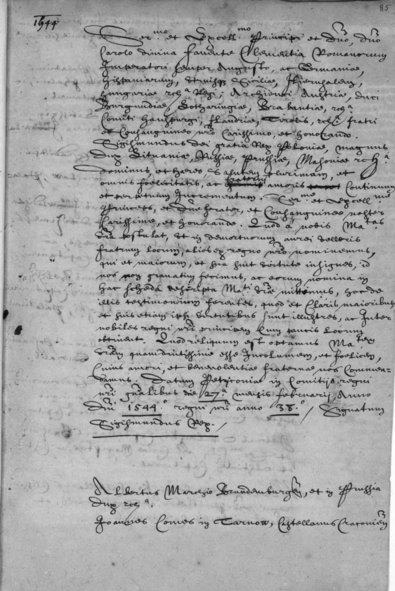 1544
85
Ser^mo et Excell^mo Principi et Dno, Dno
Carolo divina favente Clementia Romanorum
Imperatori semper Augusto, ac Germaniae,
Hispaniarum, utriusq Siciliae, Hierusalem,
Hungariae rc^a Regi, Archiduci Austriae, duci
Burgundiae, Lotharingiae, Brabantiae, rc^a
Comiti Habspurgi, Flandriae, Tirolis, rc^a fratri
et Consanguineo nro Carissimo, et honorando.
Sigismundus dei gratia Rex Poloniae, magnus
dux Lituaniae, Russiae, Prussiae, Masoviae rc^a
dominus, et heres Salutem plurimam, et
omnis foelicitatis, ac amoris Continuum
Incrementum. Ser^me et Excell^me
Princeps, et Dne frater, et Consanguinee noster
Carissime, et honorande. Quod a nobis Ma^tas
Vra postulat, ut in demortuorum aurei velleris
fratrum locum, alios ex regno nro nominemus,
qui et maiorum, et sua sint virtute insignes, id
nos non gravatim fecimus, ac eorum nomina in
hac scheda descripta M^ti Vrae mittimus, hocde
illis testimonium ferentes, quod et Claris maioribus
et suis etiam ipsi virtutibus sunt illustres, ac Inter
nobiles regni nri principem
obtineant. Quod reliquum est optamus Ma^tem
Vram quamdiutissime esse Incolumem, et foelicem,
Cuius amori, et benevolentiae fraternae nos Commen-
damus. Datum Petricoviae in Comitijs regni
nri gnalibus die 27^a mensis februarij, Anno
Dni 1544° regni nri anno 38° / Signatum
Sigismundus Rex. /
Albertus Marchio Brandenburgen, et in Prussia
dux rc^a.
Joannes Comes in Tarnow, Castellanus Cracovien